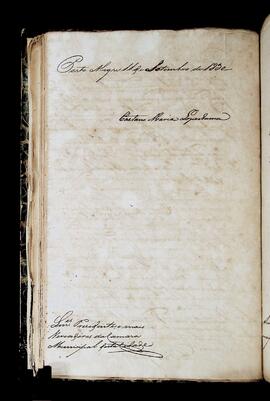 Porto Alegre 11 de Setembro de 1830
Caetano Maria Lopes Gama
Snr.es Presidente, e mais
Vereadores da Camara
Municipal desta Cidade